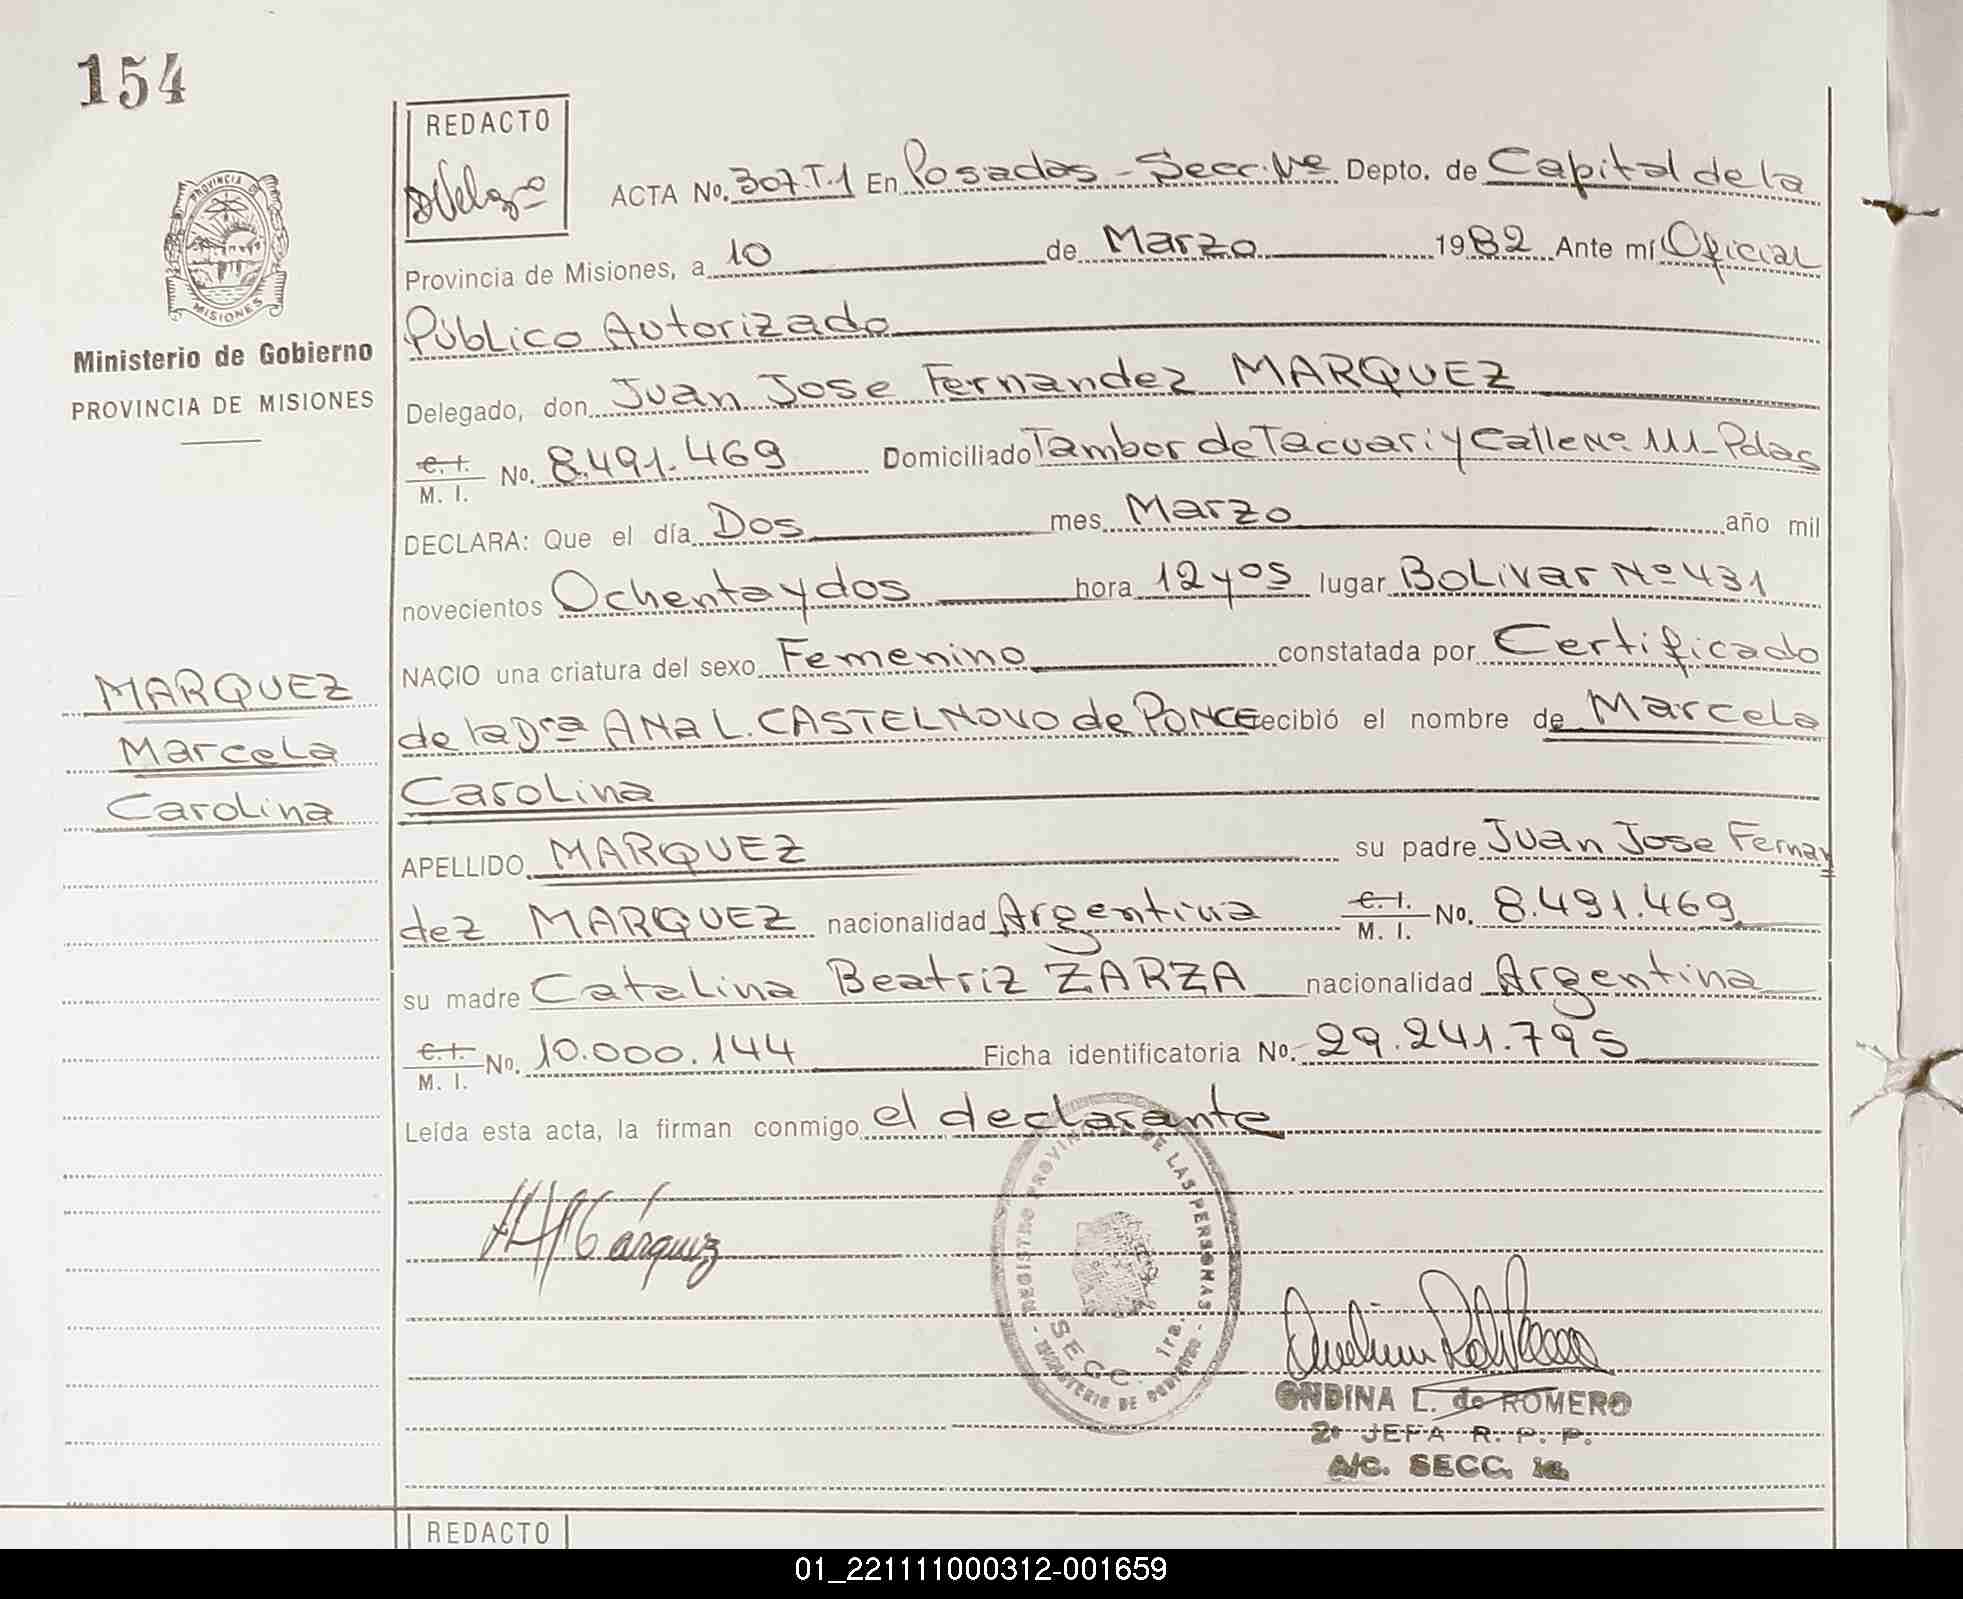 154
REDACTO
ACTA No. 307.T.1 En Posadas - Secc. Nº Depto. de Capital de la
Provincia de Misiones, a 10 de Marzo 1982 Ante mí Oficial
Público Autorizado
Delegado, don Juan Jose Fernandez MARQUEZ
C. I. M. I. No. 8.491.469 Domiciliado Tambor de Tacuari y Calle Nº 111 - Pdas
DECLARA: Que el día Dos mes Marzo año mil
novecientos Ochenta y dos hora 12 y 05 lugar Bolivar Nº 431
NACIO una criatura del sexo Femenino constatada por Certificado
de la Dra ANA L. CASTELNOVO de PONCE recibió el nombre de Marcela
Carolina
APELLIDO MARQUEZ su padre Juan Jose Fernan
dez MARQUEZ nacionalidad Argentina C. I. M. I. No. 8.491.469
su madre Catalina Beatriz ZARZA nacionalidad Argentina
C. I. M. I. No. 10.000.144 Ficha identificatoria No. 29.241.795
Leída esta acta, la firman conmigo el declarante
PROVINCIA DE MISIONES
Ministerio de Gobierno
PROVINCIA DE MISIONES
MARQUEZ
Marcela
Carolina
Márquez
REGISTRO PROVINCIAL DE LAS PERSONAS
SECC. 1ra.
- MINISTERIO DE GOBIERNO -
ONDINA L. de ROMERO
2º JEFA R. P. P.
A/C. SECC. 1a.
REDACTO
01_221111000312-001659